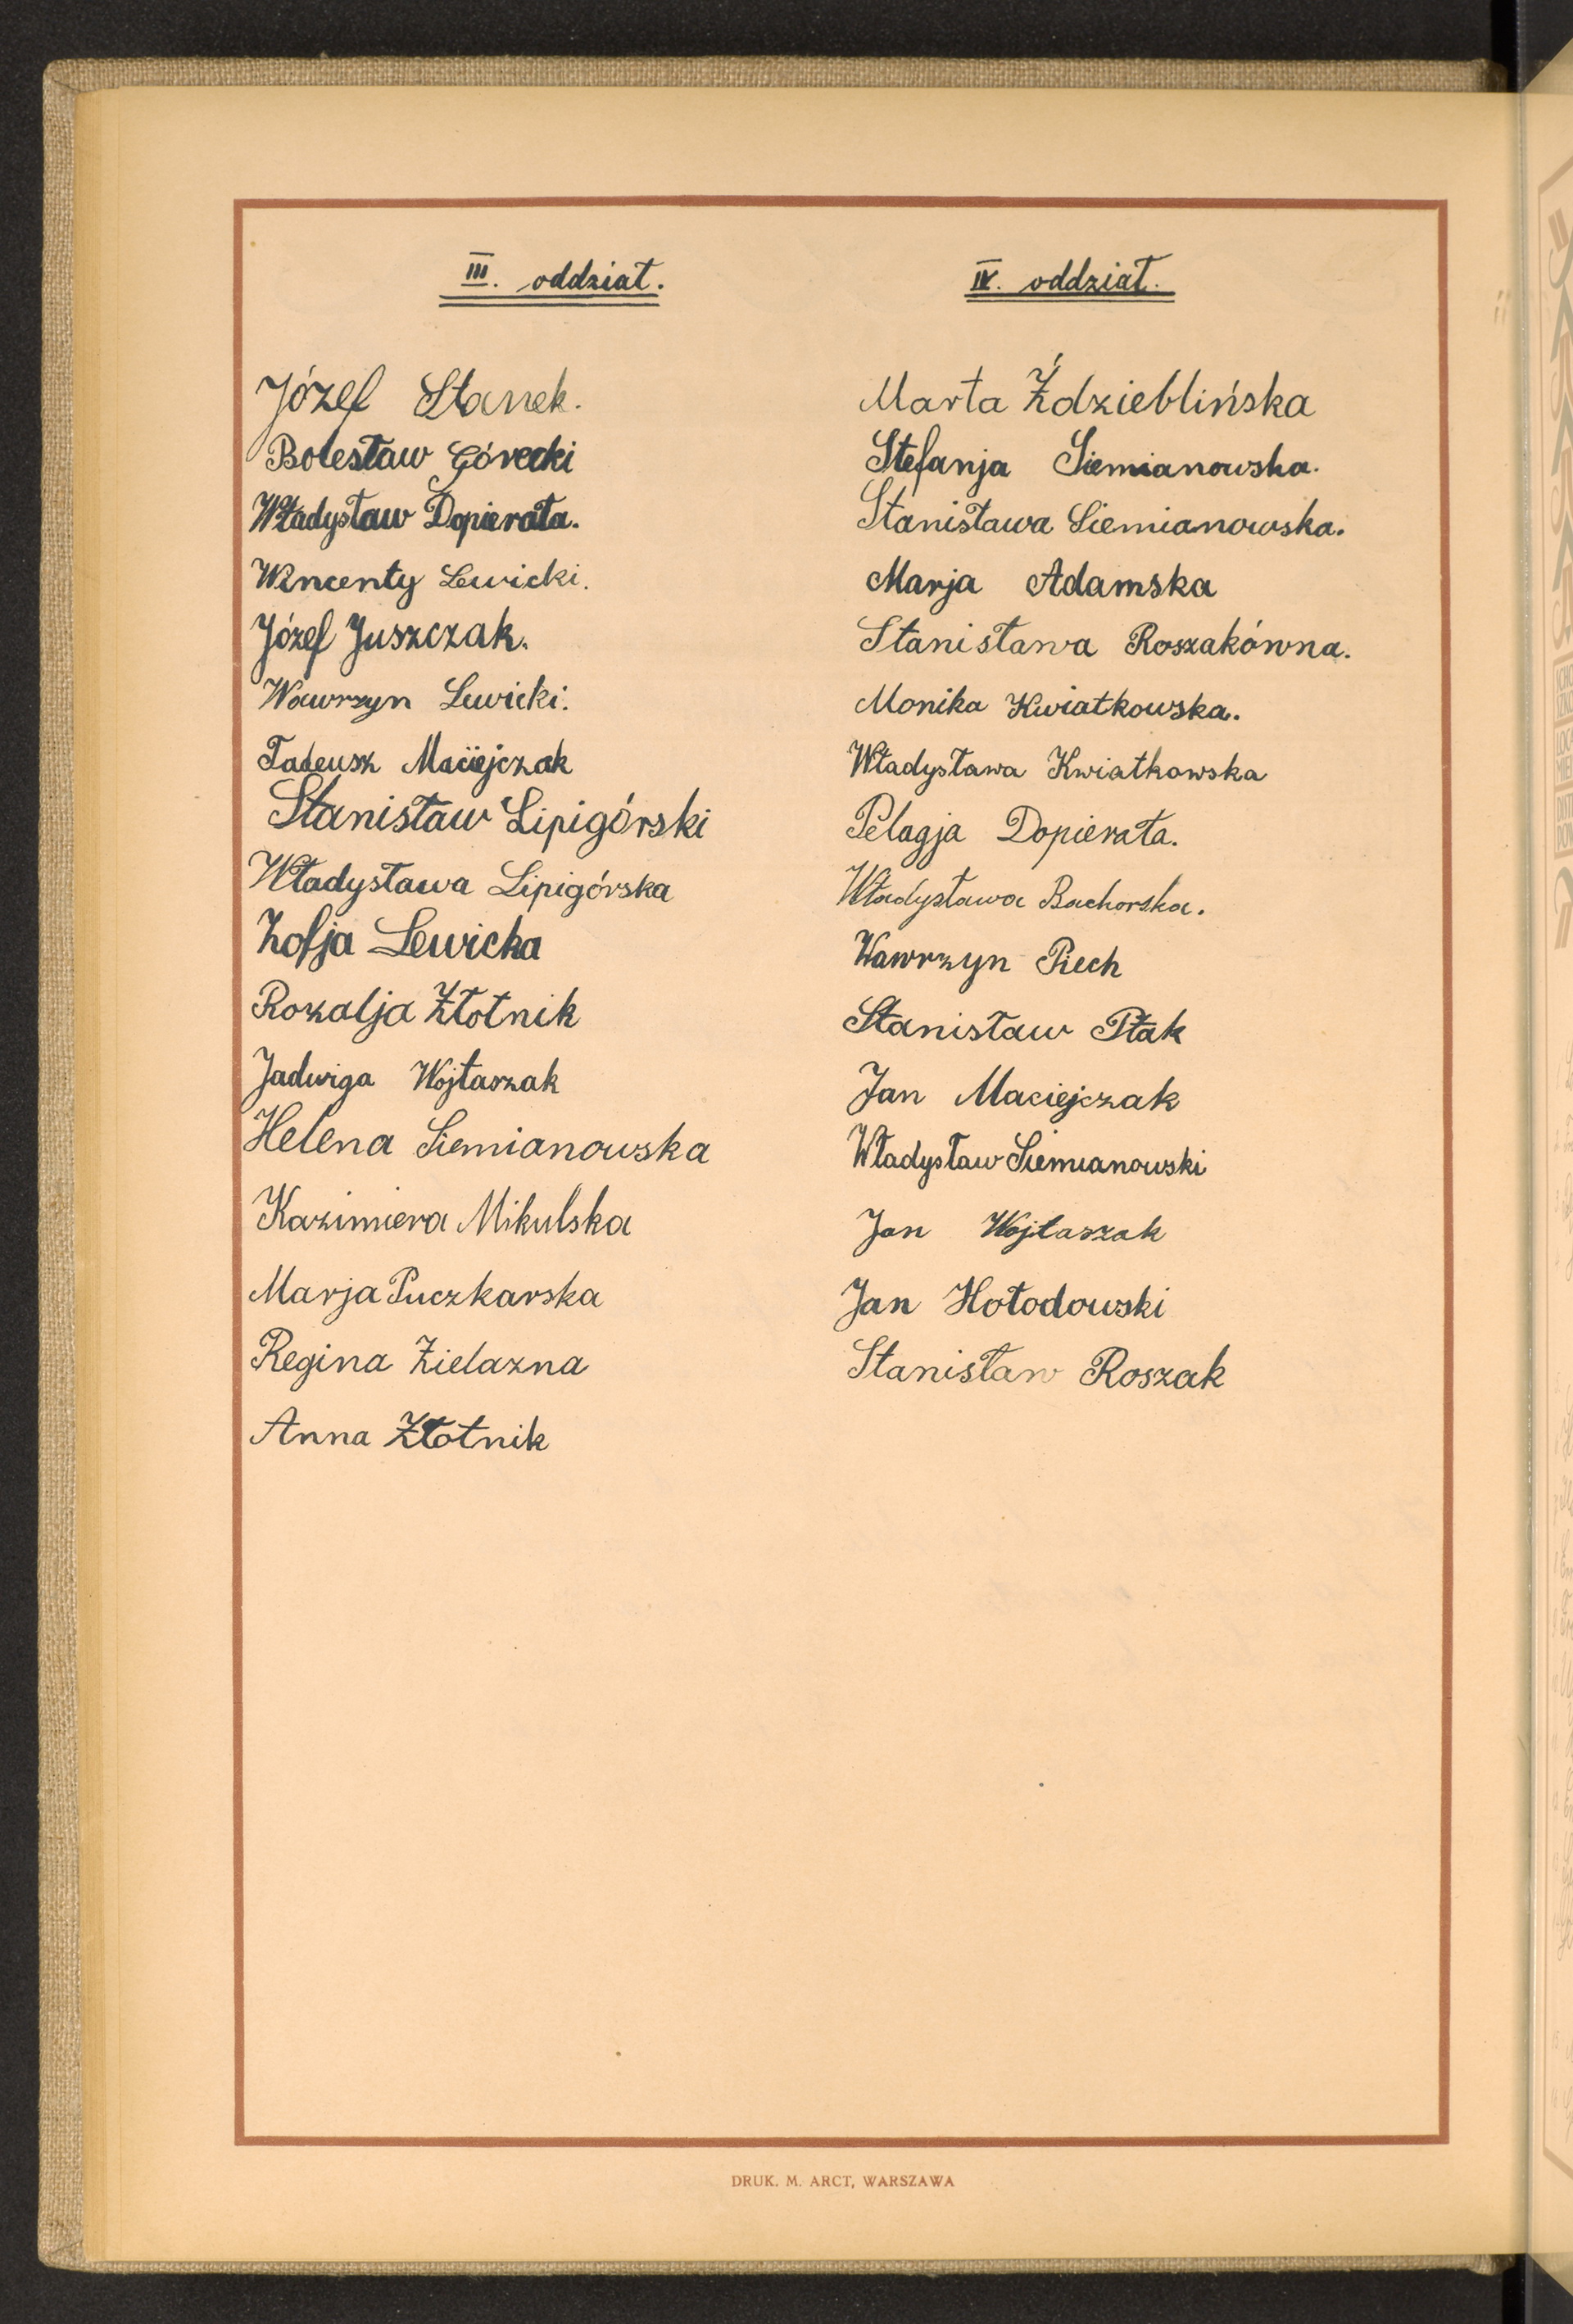 III. oddział.
Józef Stanek.
Bolesław Górecki
Władysław Dopierała.
Wincenty Lewicki.
Józef Juszczak.
Wawrzyn Lewicki.
Tadeusz Maciejczak
Stanisław Lipigórski
Władysława Lipigórska
Zofja Lewicka
Rozalja Złotnik
Jadwiga Wojtaszak
Helena Siemianowska
Kazimiera Mikulska
Marja Puczkarska
Regina Zielazna
Anna Złotnik
IV. oddział.
Marta Ździeblińska
Stefanja Siemianowska.
Stanisława Siemianowska.
Marja Adamska
Stanisława Roszakówna.
Monika Kwiatkowska.
Władysława Kwiatkowska
Pelagja Dopierała.
Władysława Bachorska.
Wawrzyn Piech
Stanisław Ptak
Jan Maciejczak
Władysław Siemianowski
Jan Wojtaszak
Jan Hołodowski
Stanisław Roszak
DRUK. M. ARCT, WARSZAWA